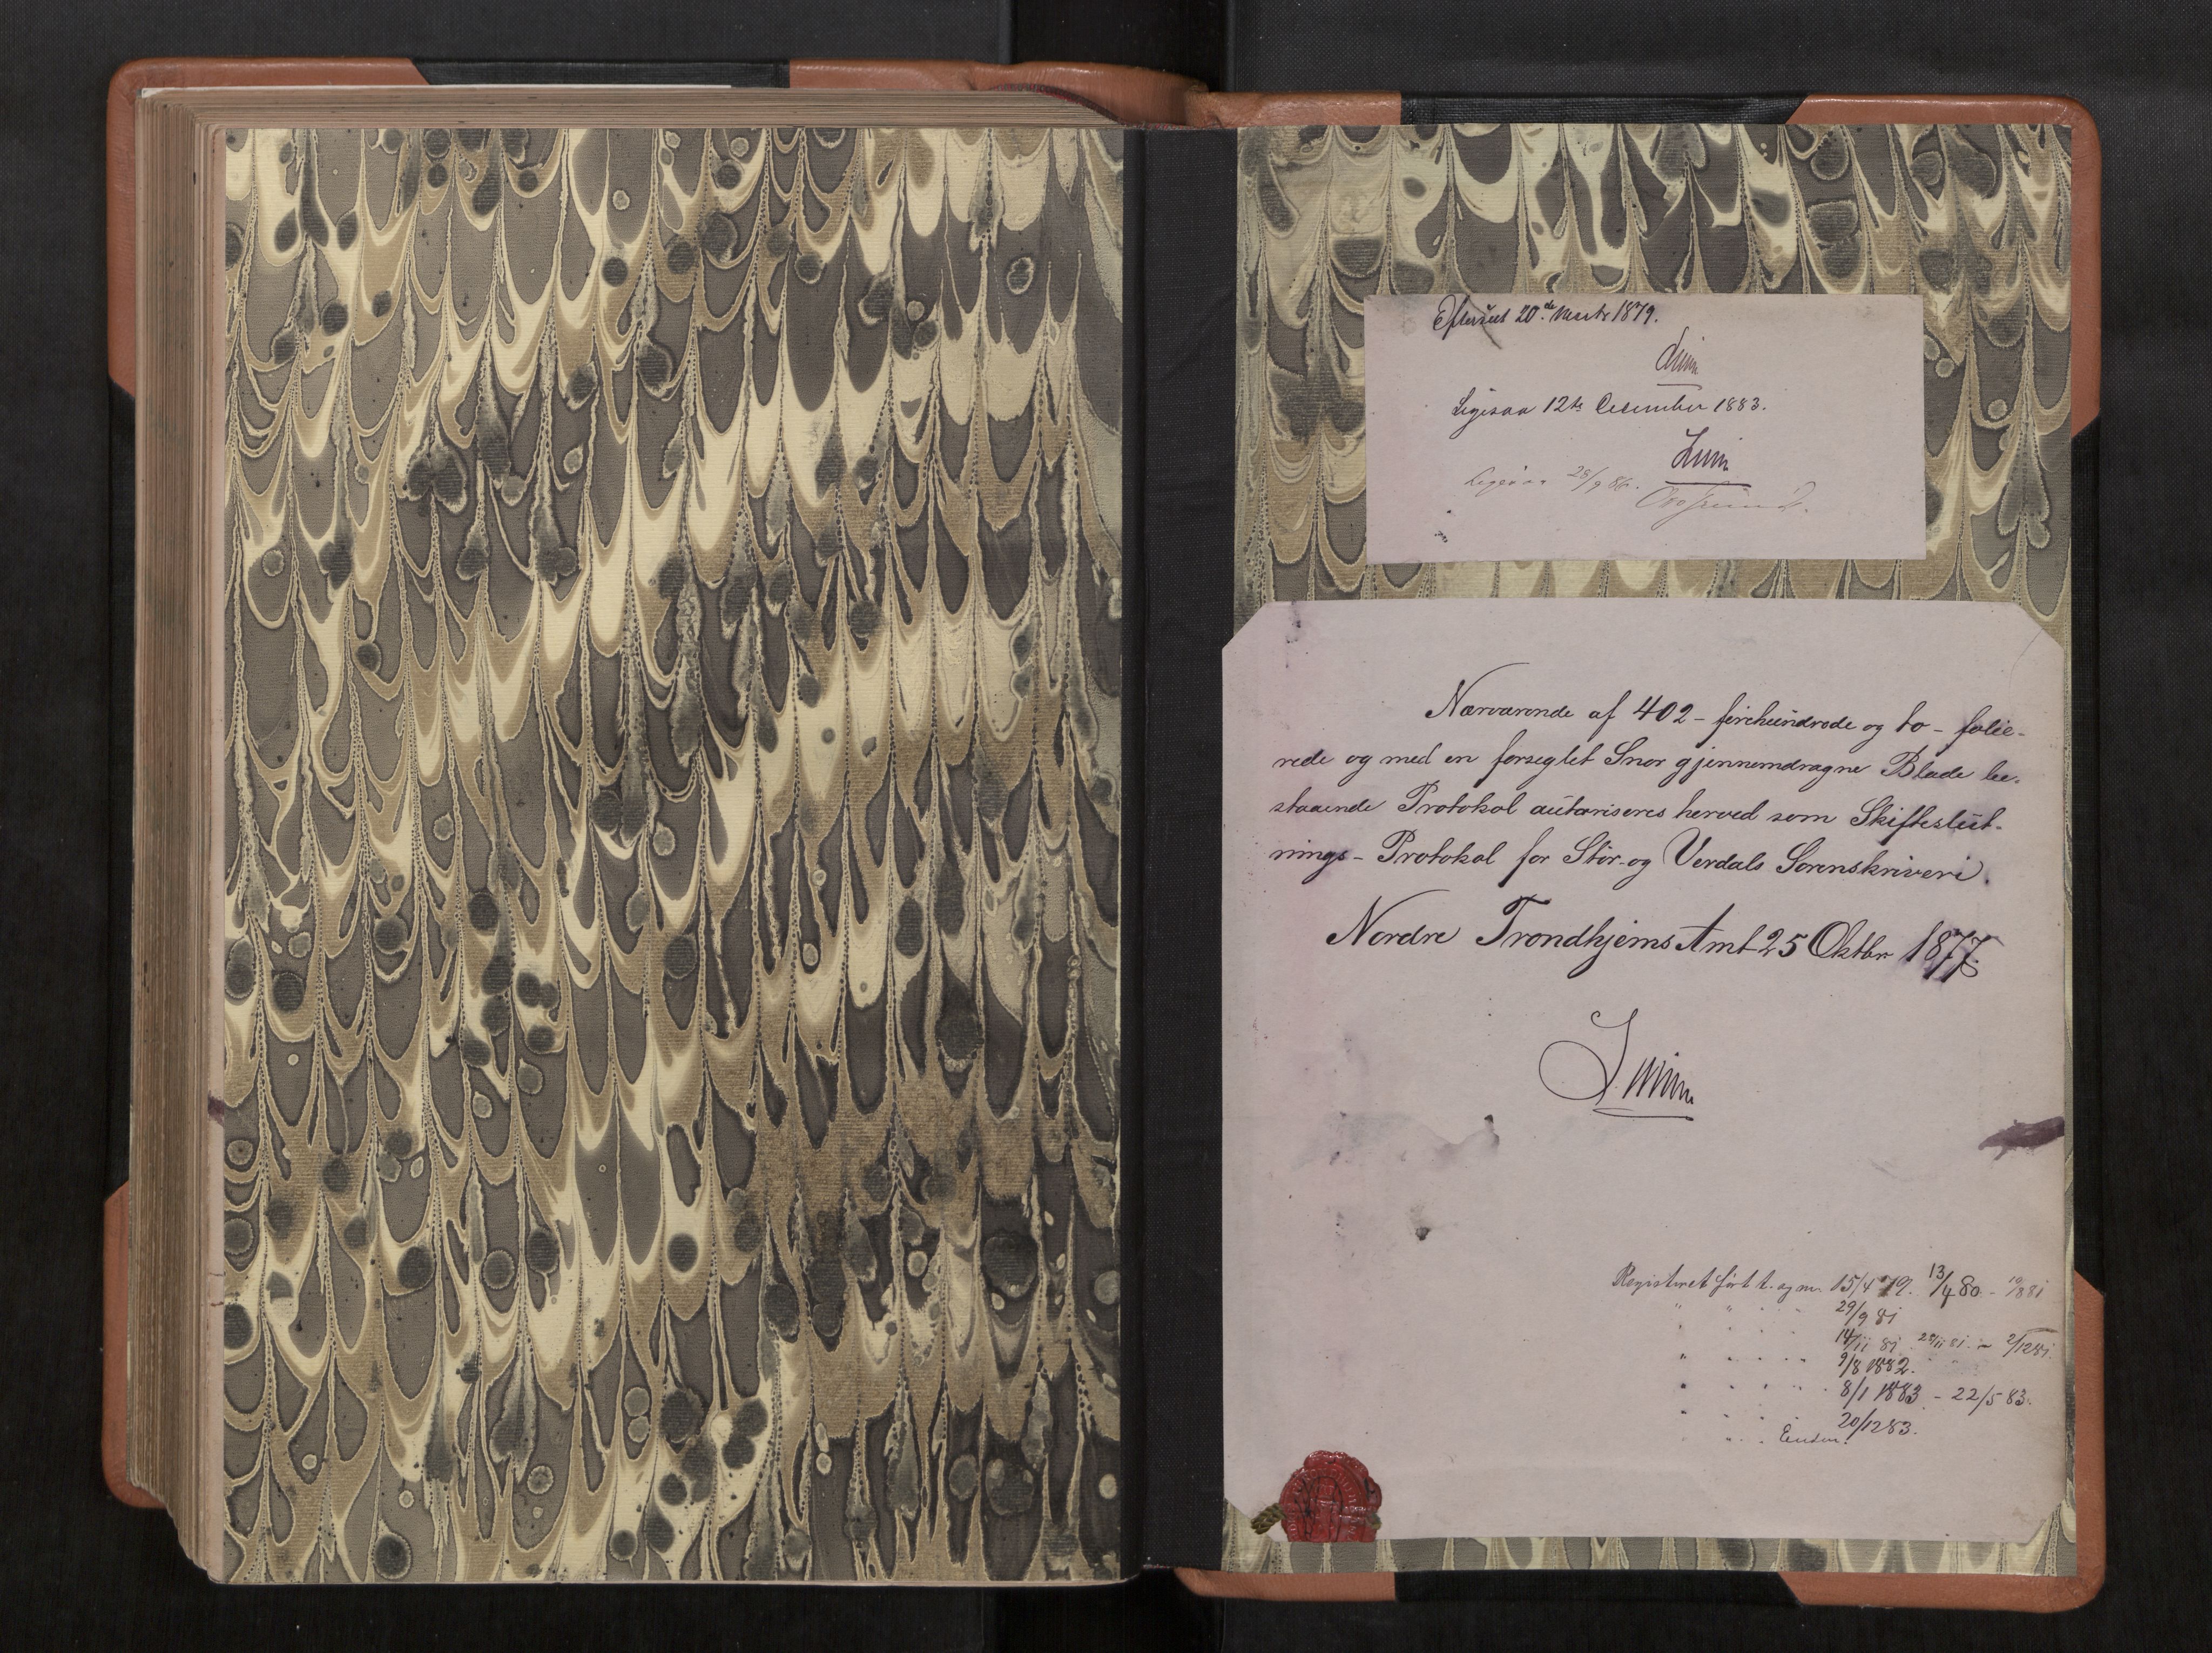 Efterseet 20de Marts 1879.
Ligesaa 12te December 1883.
Ligesaa 28/9 86.
Nærværende af 402 - firehundrede og to - folie-
rede og med en forseglet Snor gjennemdragne Blade be-
staaende Protokol autoriseres herved som Skifteslut-
nings - Protokol for Stør- og Verdals Sorenskriveri.
Nordre Trondhjems Amt 25 Oktbr 1877.
Registeret ført t. og m. 15/4 79. 13/4 80 - 10/8 81
" " 29/9 81
" 14/11 81. 28/11 81. - 2/12 81.
" 9/8 1882.
" 8/1 1883 - 22/5 83.
" 20/12 83.
" Enden.